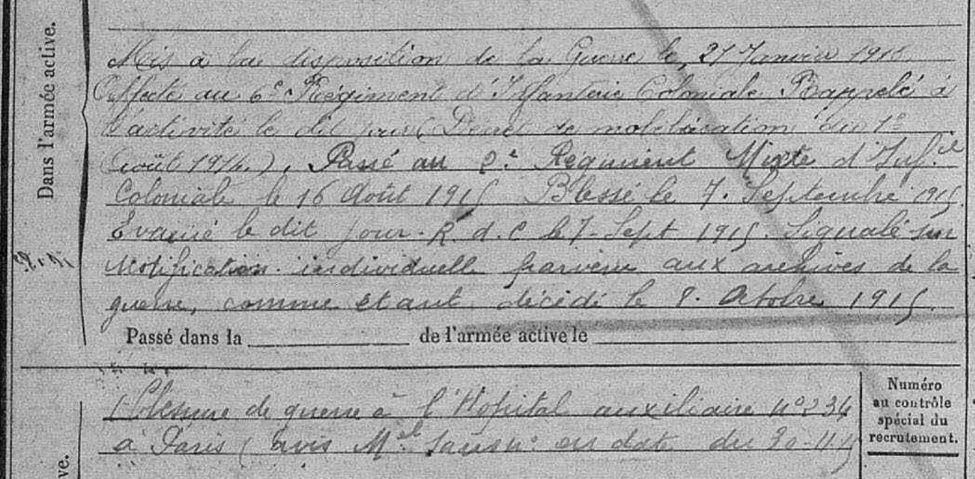 Dans l'armée active.
Mis à la disposition de la Guerre le, 21 Janvier 1915.
Affecté au 6e Régiment d'Infanterie Coloniale Rappelé à
l'activité le dit jour (Décret de mobilisation du 1er
Août 1914.), Passé au 2e Régiment Mixte d'Infie
Coloniale le 16 Août 1915 Blessé le 7. Septembre 1915.
Evacué le dit jour. R. d. C le 7 - Sept 1915. Signalé sur
Notification individuelle parvenue aux archives de la
guerre, comme étant décédé le 8. Octobre 1915.
Passé dans la de l'armée active le
Numéro
au contrôle
spécial du
recrutement.
(blessure de guerre à l'Hopital auxiliaire No 234
à Paris (avis Mel en date du 30-11-15
ve.